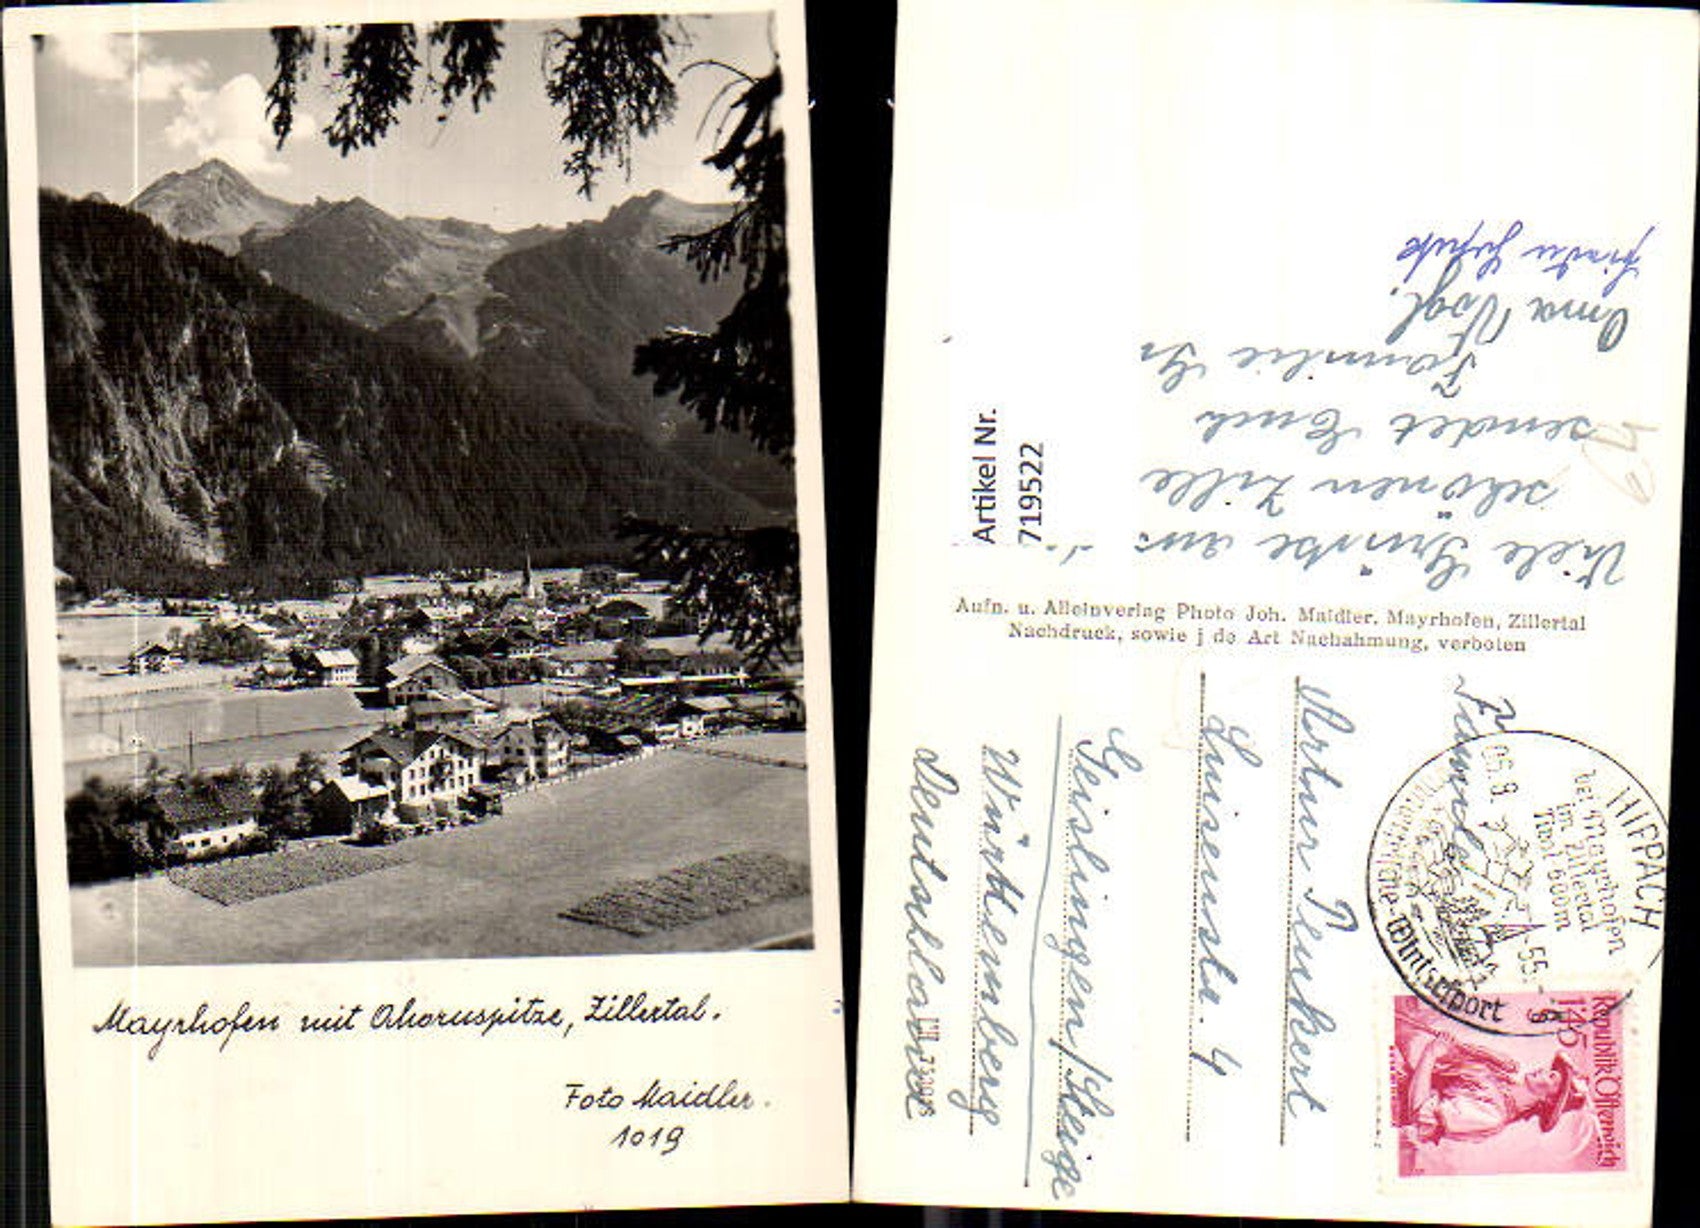 Mayrhofen mit Ahornspitze, Zillertal.
Foto Maidler.
1019
Artikel Nr.
719522
Viele Grüsse aus
schönen Zille
sendet Euch
Familie
Oma Vogl.
Aufn. u. Alleinverlag Photo Joh. Maidler, Mayrhofen, Zillertal
Nachdruck, sowie j de Art Nachahmung, verboten
Familie
Artur Penkert
Luisenstr. 4
Geislingen/Steige
Württemberg
Deutschland
HIPPACH
bei Mayrhofen
im Zillertal
Tirol 600m
-55.-
Wintersport
Republik Österreich
1'45